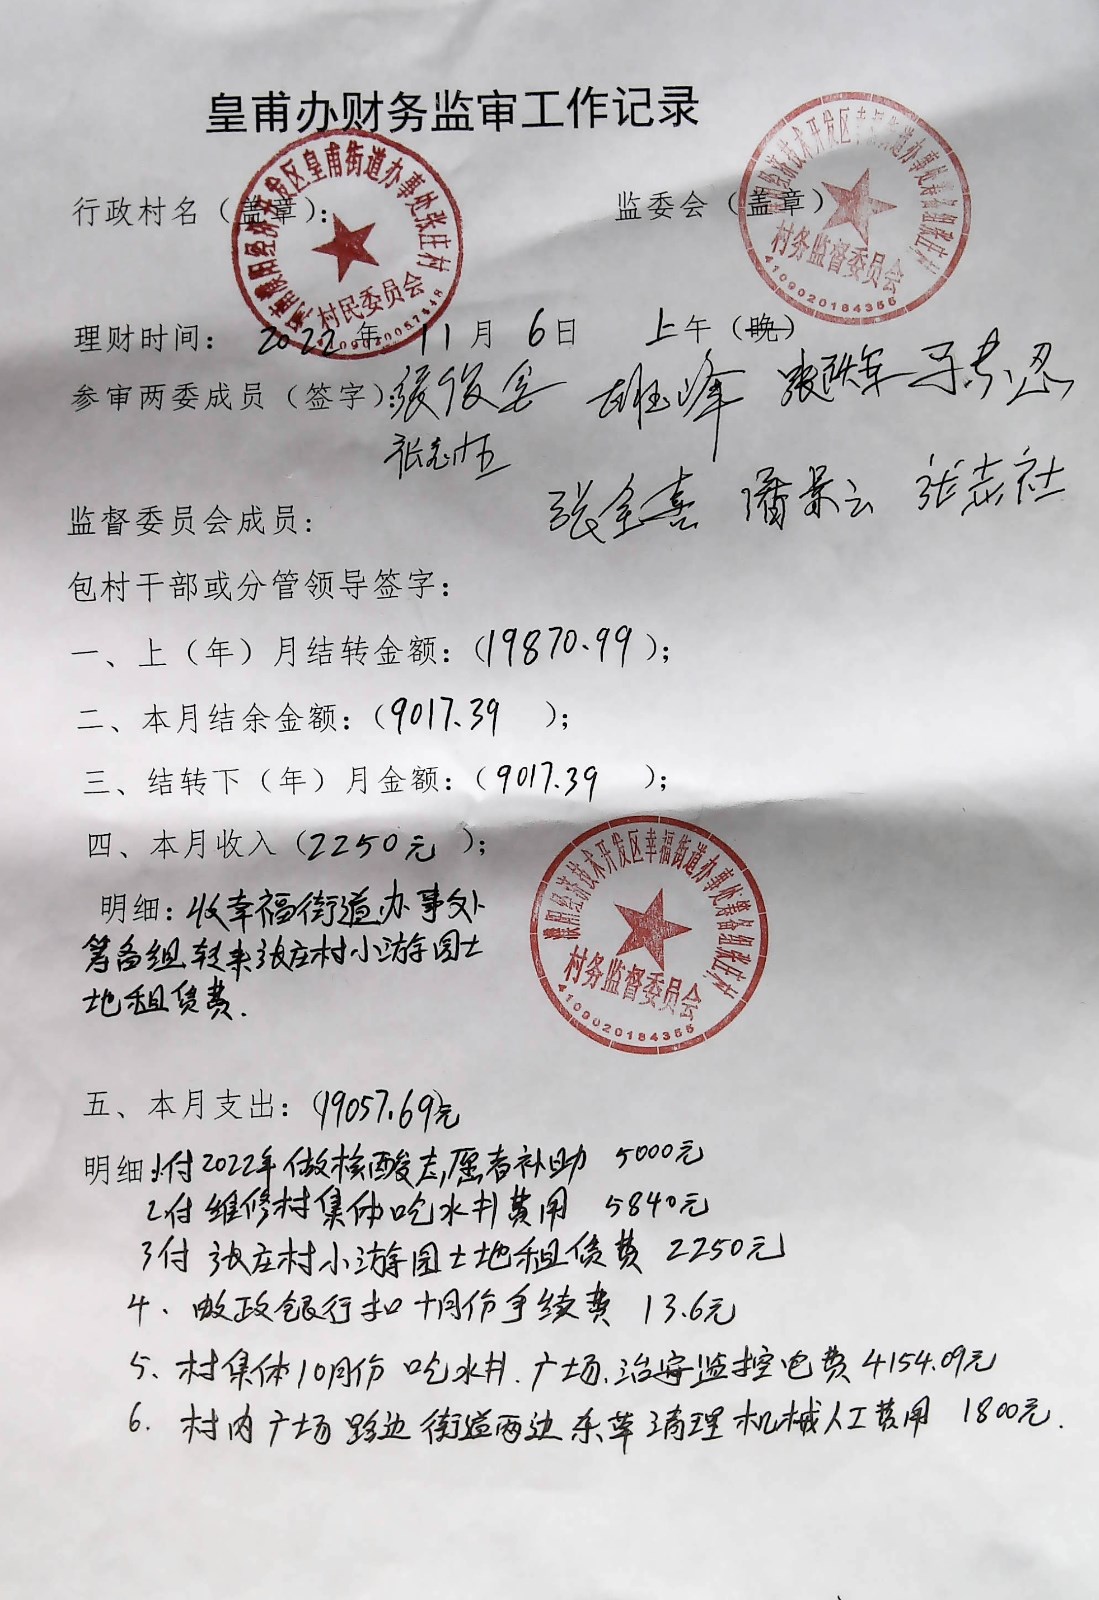 皇甫办财务监审工作记录
行政村名（盖章）： 监委会（盖章）
皇甫街道办事处张庄村
村民委员会
村务监督委员会
4109020184355
理财时间： 2022年 11月 6日 上午（晚）
参审两委成员（签字）：张俊安 班峰
张志旺
张全喜 潘景云 张志社
监督委员会成员：
包村干部或分管领导签字：
一、上（年）月结转金额：（19870.99）；
二、本月结余金额：（9017.39 ）；
三、结转下（年）月金额：（9017.39 ）；
四、本月收入（2250元 ）；
明细：收幸福街道办事处
筹备组转来张庄村小游园土
地租赁费.
濮阳经济技术开发区幸福街道办事处筹备组张庄村
村务监督委员会
4109020184355
五、本月支出：（19057.69）元
明细：1付2022年做核酸志愿者补助 5000元
2付维修村集体吃水井费用 5840元
3付 张庄村小游园土地租赁费 2250元
4、邮政银行扣十月份手续费 13.6元
5、村集体10月份吃水井.广场.治安监控电费4154.09元
6.村内广场路边街道两边杂草清理机械人工费用 1800元.